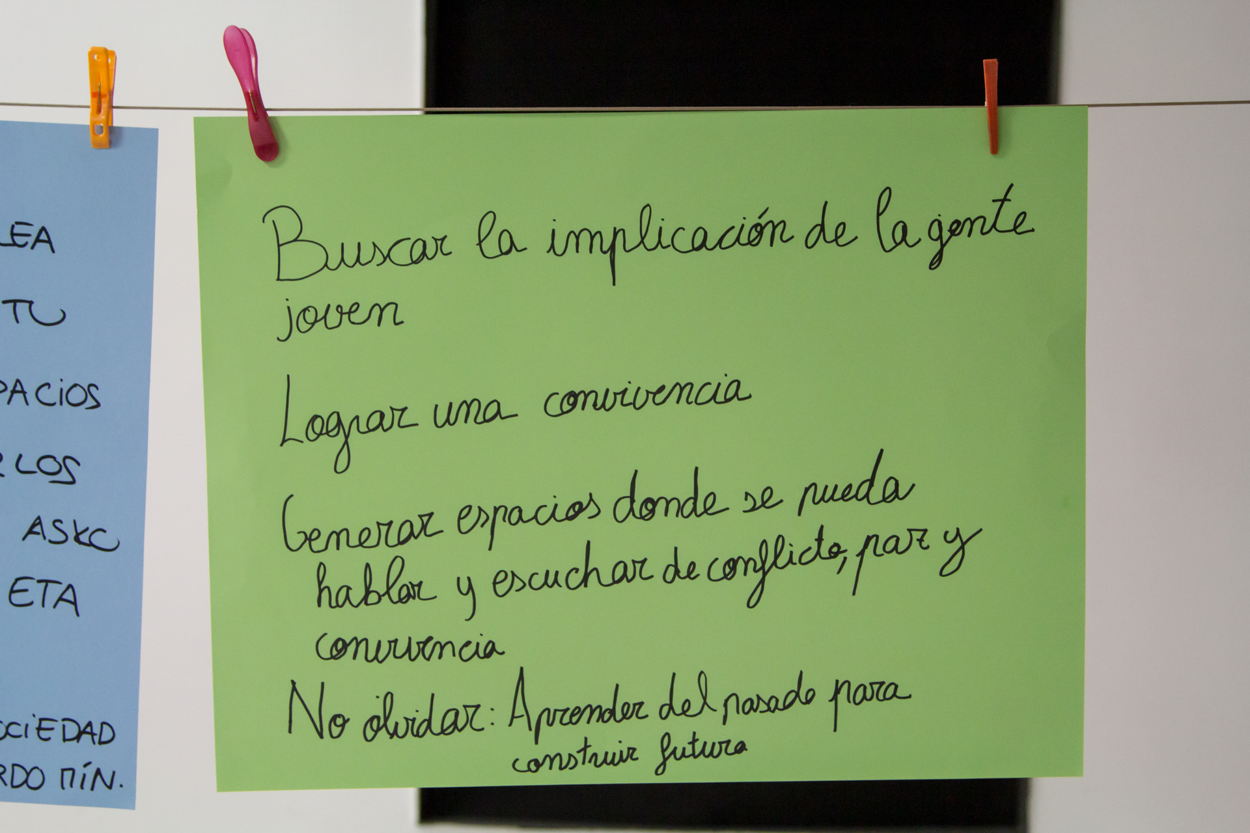 LEA
TU
PACIOS
R LOS
ASKO
ETA
OCIEDAD
RDO MÍN.
Buscar la implicación de la gente
joven
Lograr una convivencia
Generar espacios donde se pueda
hablar y escuchar de conflicto, paz y
convivencia
No olvidar: Aprender del pasado para
construir futuro